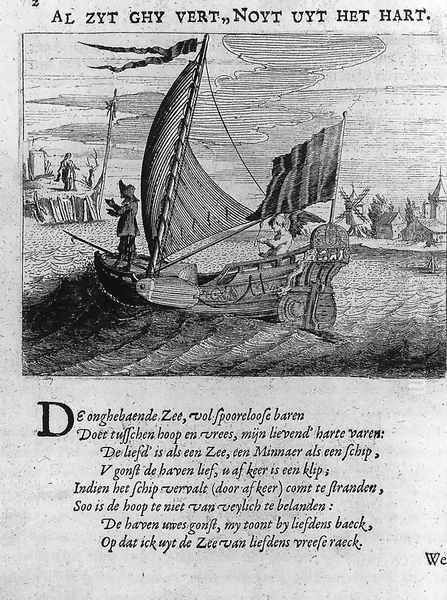 2
AL ZYT GHY VERT,, NOYT UYT HET HART.
De onghebaende Zee, vol spooreloose baren
Doet tusschen hoop en vrees, mijn lievend' harte varen:
De liefd' is als een Zee, een Minnaer als een schip,
V gonst de haven lief, u af keer is een klip;
Indien het schip vervalt (door af keer) comt te stranden,
Soo is de hoop te niet van veylich te belanden:
De haven uwes gonst, my toont by liefdens baeck,
Op dat ick uyt de Zee van liefdens vreese raeck.
We